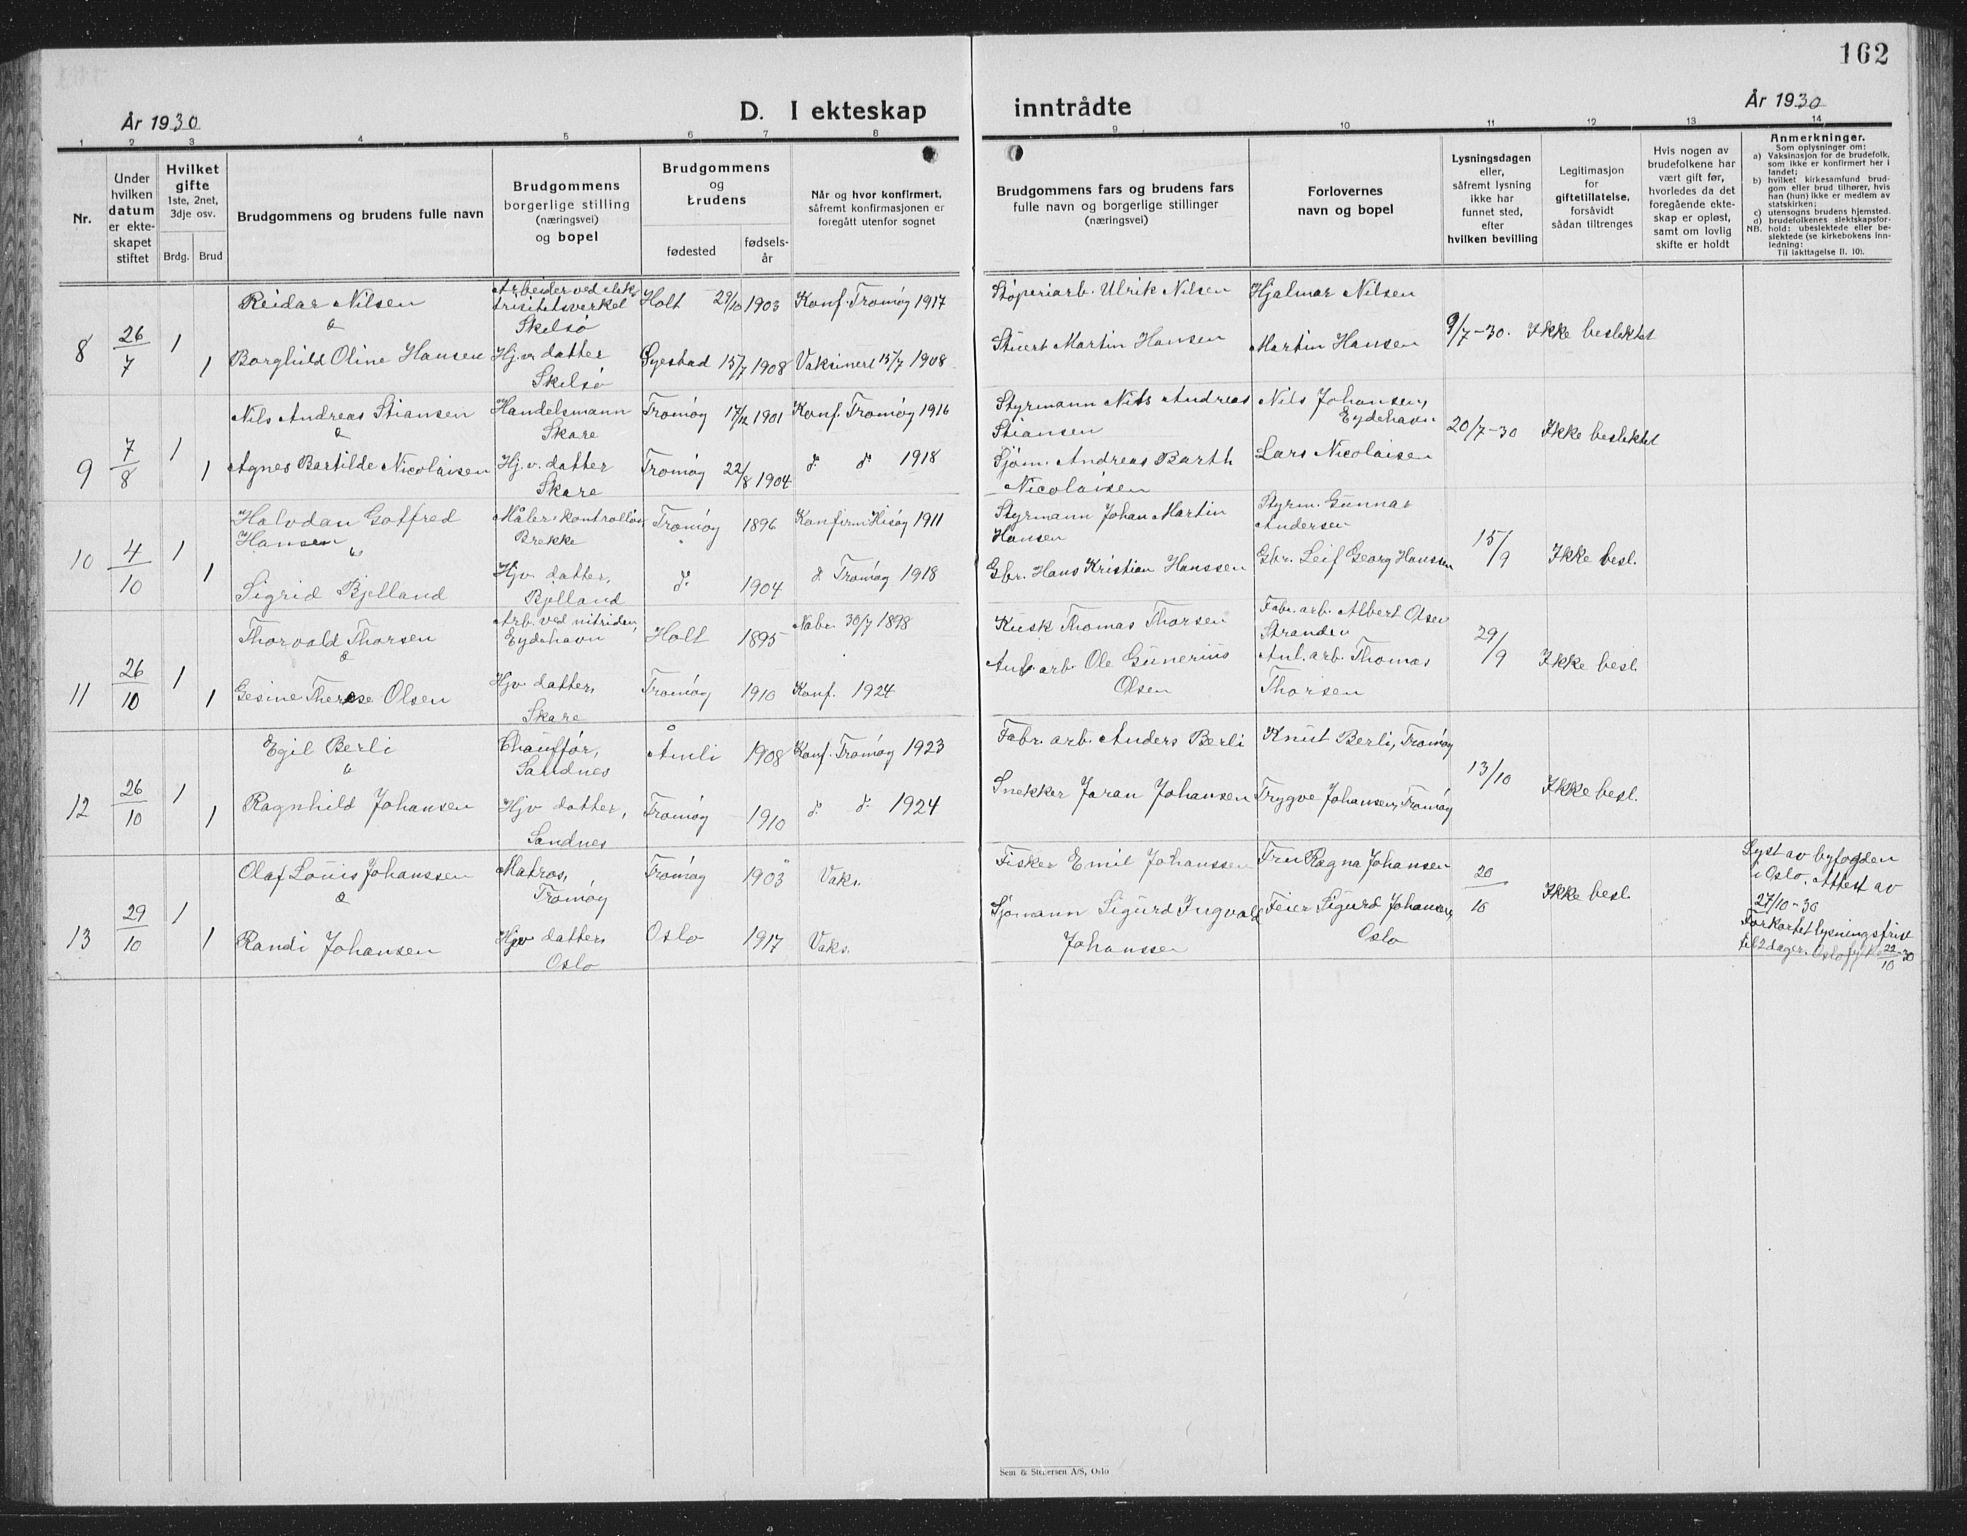 162
År 1930
D. I ekteskap inntrådte
År 1930
1 2 3 4 5 6 7 8 9 10 11 12 13 14
Nr.
Under
hvilken
datum
er ekte-
skapet
stiftet
Hvilket
gifte
1ste, 2net,
3dje osv.
Brdg. Brud
Brudgommens og brudens fulle navn
Brudgommens
borgerlige stilling
(næringsvei)
og bopel
Brudgommens
og
brudens
fødested
fødsels-
år
Når og hvor konfirmert,
såfremt konfirmasjonen er
foregått utenfor sognet
Brudgommens fars og brudens fars
fulle navn og borgerlige stillinger
(næringsvei)
Forlovernes
navn og bopel
Lysningsdagen
eller,
såfremt lysning
ikke har
funnet sted,
efter
hvilken bevilling
Legitimasjon
for
giftetillatelse,
forsåvidt
sådan tiltrenges
Hvis nogen av
brudefolkene har
vært gift før,
hvorledes da det
foregående ekte-
skap er opløst,
samt om lovlig
skifte er holdt
Anmerkninger.
Som oplysninger om:
a) Vaksinasjon for de brudefolk,
som ikke er konfirmert her i
landet;
b) hvilket kirkesamfund brud-
gom eller brud tilhører, hvis
han (hun) ikke er medlem av
statskirken;
c) utensogns brudens hjemsted.
d) brudefolkenes slektskapsfor-
NB. hold: ubeslektede eller be-
slektede (se kirkebokens inn-
ledning:
Til iakttagelse II. 10).
8 26/7 1 Reidar Nilsen Arbeider ved elek-
trisitetsverket
Skilsø Holt 29/10 1903 Konf. Tromøy 1917 Støperiarb. Ulrik Nilsen Hjalmar Nilsen 9/7-30. Ikke beslektet
&
1 Borghild Oline Hansen Hj.v. datter
Skilsø Øyestad 15/7 1908 Vaksinert 15/7 1908. Stuert Martin Hansen Martin Hansen
9 7/8 1 Nils Andreas Stiansen Handelsmann
Skare Tromøy 17/12 1901 Konf. Tromøy 1916 Styrmann Nils Andreas
Stiansen Nils Johansen,
Eydehavn 20/7-30 Ikke beslektet
&
1 Agnes Bartilde Nicolaisen Hj.v. datter
Skare Tromøy 22/8 1904 d. d. 1918 Sjøm. Andreas Barth
Nicolaisen Lars Nicolaisen
10 4/10 1 Halvdan Gotfred
Hansen Måler-kontrollør
Brekke Tromøy 1896 Konfirm. Hisøy 1911 Styrmann Johan Martin
Hansen Styrm. Gunnar
Andersen 15/9 Ikke besl.
&
1 Sigrid Bjelland Hjv. datter,
Bjelland d. 1904 d. Tromøy 1918 Gbr. Hans Kristian Hanssen Gbr. Leif Georg Hanssen
11 26/10 1 Thorvald Thorsen Arb. ved nitriden,
Eydehavn Holt 1895 30/7 1898 Kusk Thomas Thorsen Fabr. arb. Albert Olsen
Stranden 29/9 Ikke besl.
&
1 Gesine Therese Olsen Hjv. datter,
Skare Tromøy 1910 Konf. 1924 Anl. arb. Ole Gunerius
Olsen Anl. arb. Thomas
Thorsen
12 26/10 1 Egil Berli Chauffør,
Sandnes Åmli 1908 Konf. Tromøy 1923 Fabr. arb. Anders Berli Knut Berli, Tromøy 13/10 Ikke besl.
&
1 Ragnhild Johansen Hjv. datter,
Sandnes Tromøy 1910 d. d. 1924 Snekker Joran Johansen Trygve Johansen, Tromøy
13 29/10 1 Olaf Louis Johanssen Matros,
Tromøy Tromøy 1903 Vaks. Fisker Emil Johanssen Fru Ragna Johansen 20/10 Ikke besl. Lyst av byfogden
i Oslo. Attest av
27/10-30
&
1 Randi Johansen Hjv. datter,
Oslo Oslo 1917 Vaks. Sjømann Sigurd Ingvald
Johanssen Feier Sigurd Johansen,
Oslo Forkortet lysningsfrist
til 2 dager. Oslo 22/10-30
Sem & Stenersen A/S, Oslo